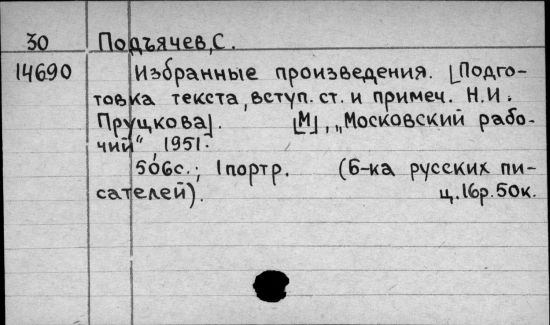 30 Подъячев, С.
14690 Избранные произведения. [Подго-
товка текста, вступ. ст. и примеч. Н.И.
Пруцкова]. [М], „Московский рабо-
чий“, 1951.
506с.; 1 портр. (Б-ка русских пи-
сателей). ц. 16р. 50к.